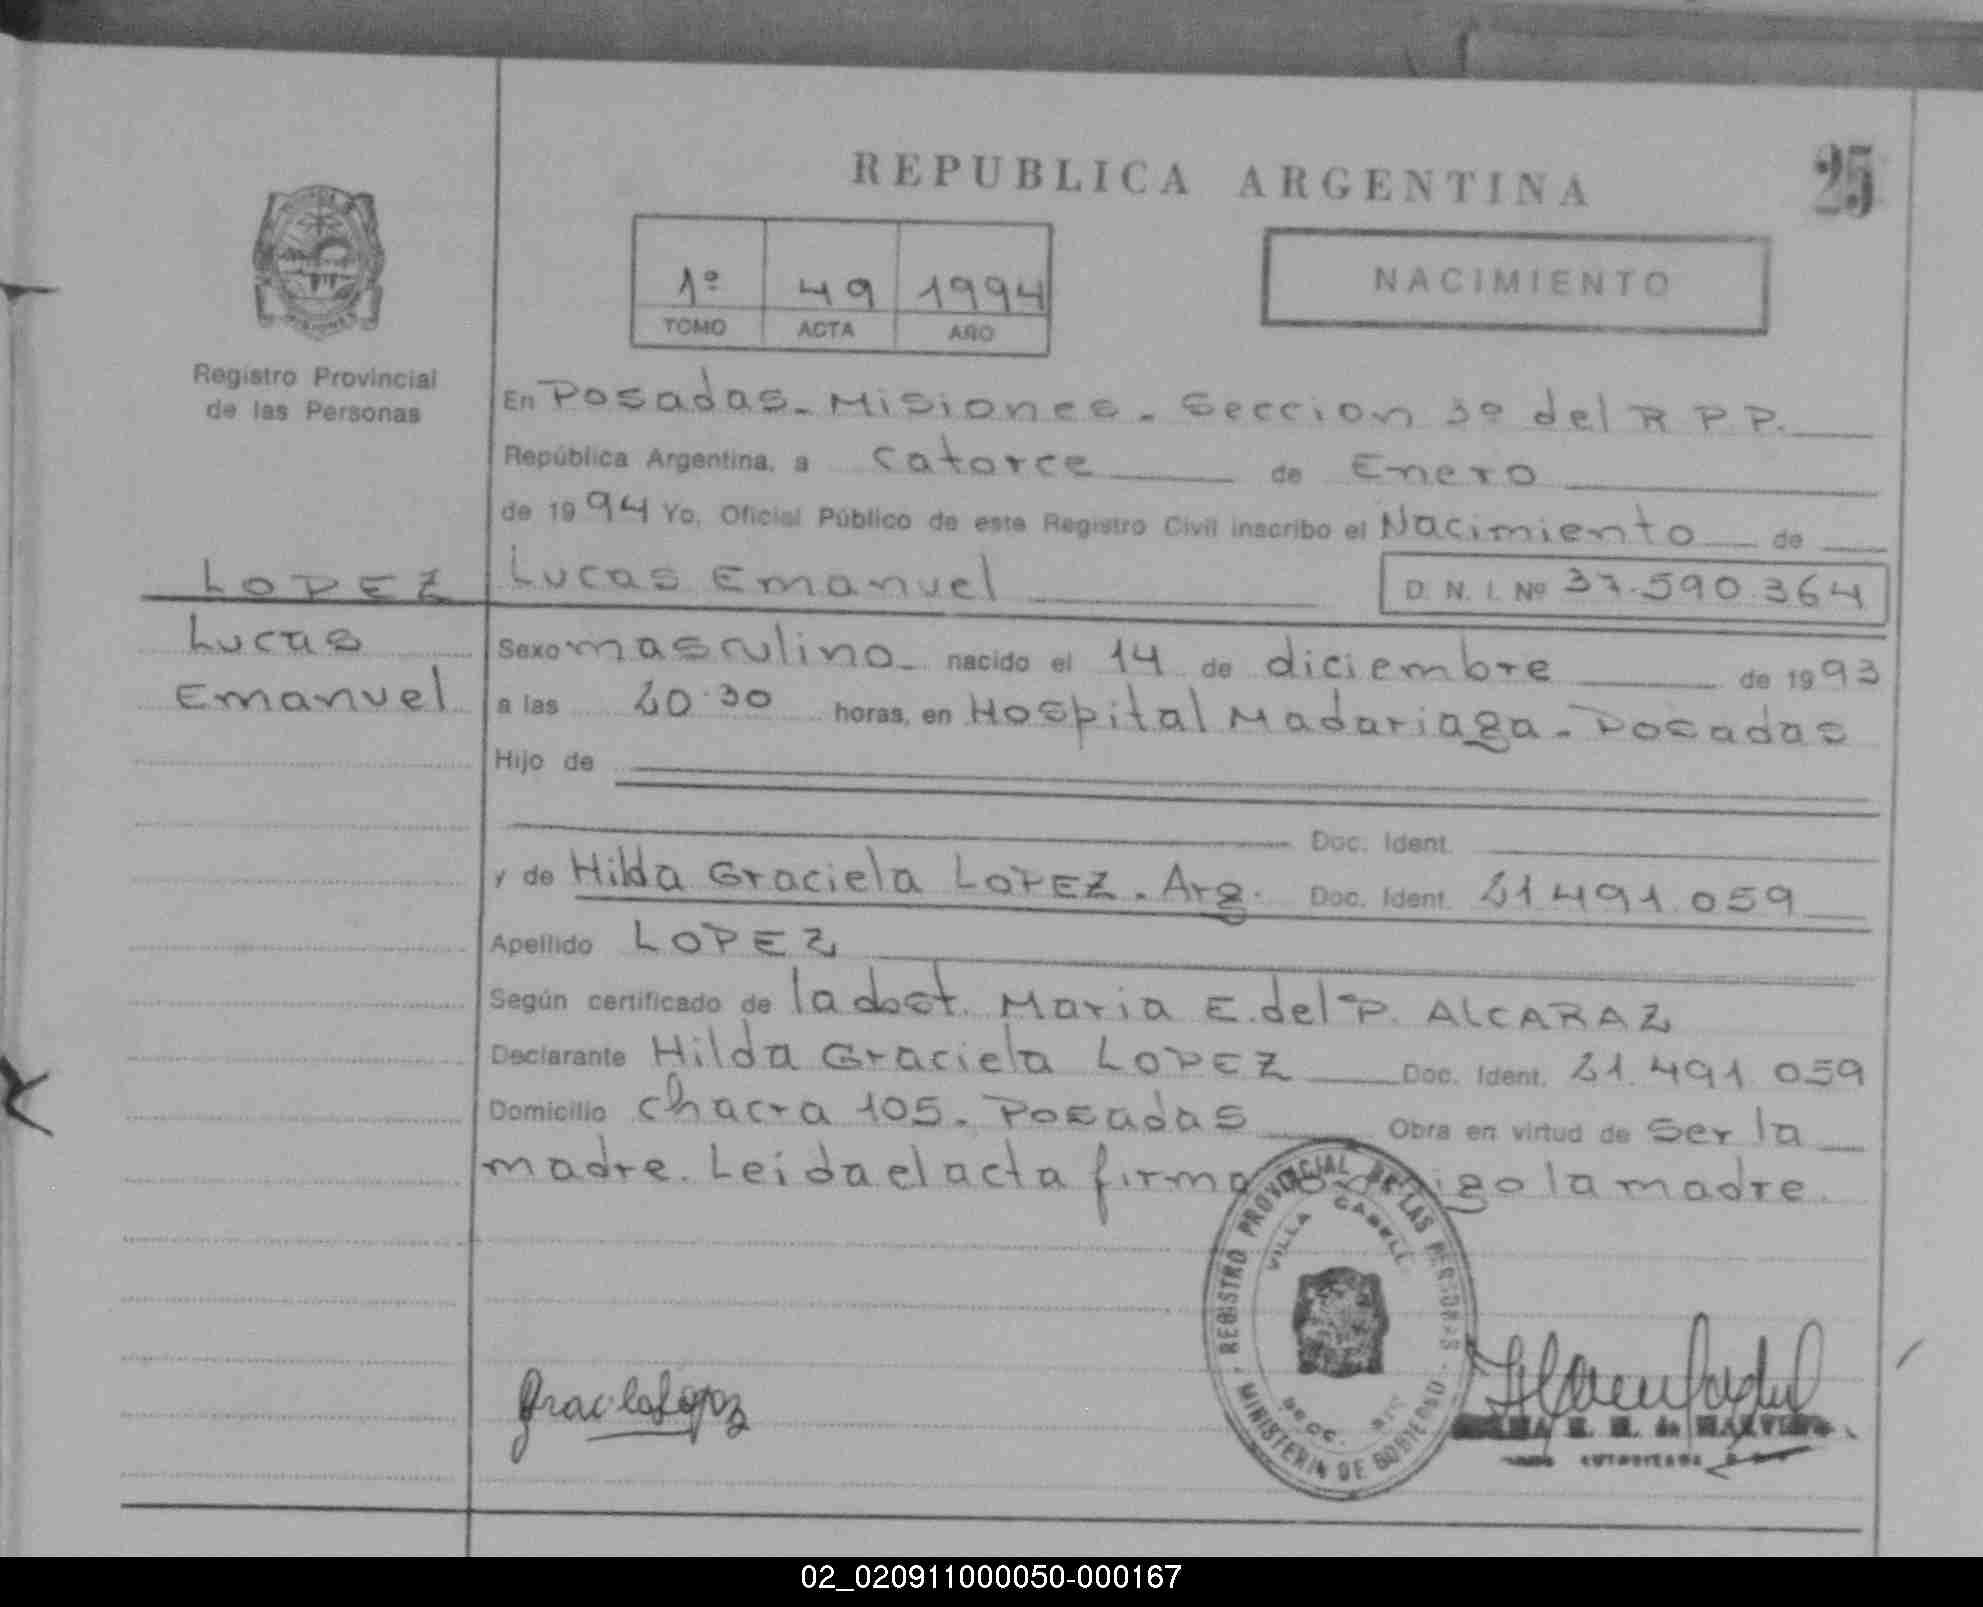 REPUBLICA ARGENTINA
25
1º 49 1994
TOMO ACTA AÑO
NACIMIENTO
Registro Provincial
de las Personas
En Posadas - Misiones - Seccion 3º del R P P.
República Argentina, a catorce de Enero
de 1994 Yo, Oficial Público de este Registro Civil inscribo el Nacimiento de
LOPEZ Lucas Emanuel D. N. I. Nº 37.590.364
Lucas
Emanuel
Sexo masculino - nacido el 14 de diciembre de 1993
a las 20.30 horas, en Hospital Madariaga - Posadas
Hijo de
Doc. Ident.
y de Hilda Graciela LOPEZ - Arg. Doc. Ident. 21.491.059
Apellido LOPEZ
Según certificado de la obst. Maria E. del P. ALCARAZ
Declarante Hilda Graciela LOPEZ Doc. Ident. 21.491.059
Domicilio chacra 105 - Posadas Obra en virtud de ser la
madre. Leida el acta firma la madre.
REGISTRO PROVINCIAL DE LAS PERSONAS
VILLA CABELL
MINISTERIO DE GOBIERNO
Graciela Lopez
02_020911000050-000167